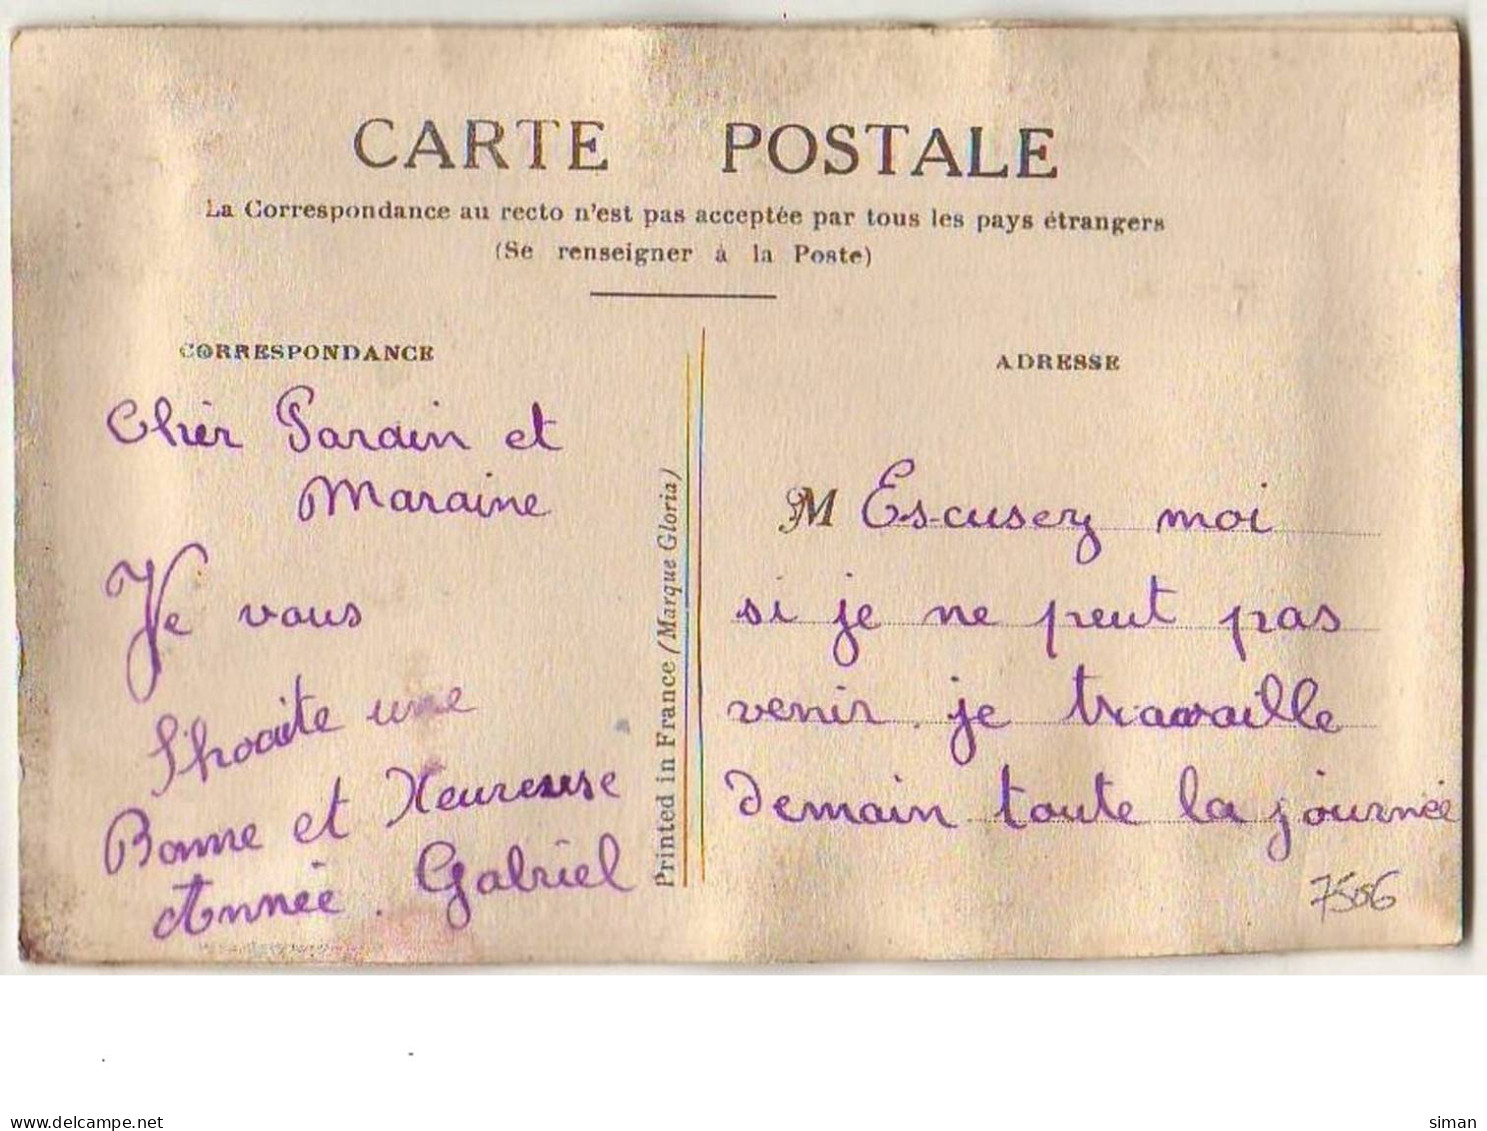 CARTE POSTALE
La Correspondance au recto n'est pas acceptée par tous les pays étrangers
(Se renseigner à la Poste)
CORRESPONDANCE
Cher Parain et
Maraine
Je vous
Shoaite une
Bonne et Heureuse
Année. Gabriel
Printed in France (Marque Gloria)
ADRESSE
M Escusez moi
si je ne peut pas
venir. je travaille
demain toute la journée
7506
delcampe.net
siman